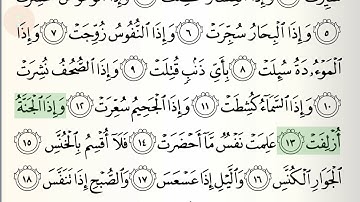 ۝٥ وَإِذَا ٱلْبِحَارُ سُجِّرَتْ ۝٦ وَإِذَا ٱلنُّفُوسُ زُوِّجَتْ ۝٧ وَإِذَا
ٱلْمَوْءُۥدَةُ سُئِلَتْ ۝٨ بِأَىِّ ذَنۢبٍ قُتِلَتْ ۝٩ وَإِذَا ٱلصُّحُفُ نُشِرَتْ
۝١٠ وَإِذَا ٱلسَّمَآءُ كُشِطَتْ ۝١١ وَإِذَا ٱلْجَحِيمُ سُعِّرَتْ ۝١٢ وَإِذَا ٱلْجَنَّةُ
أُزْلِفَتْ ۝١٣ عَلِمَتْ نَفْسٌ مَّآ أَحْضَرَتْ ۝١٤ فَلَآ أُقْسِمُ بِٱلْخُنَّسِ ۝١٥
ٱلْجَوَارِ ٱلْكُنَّسِ ۝١٦ وَٱلَّيْلِ إِذَا عَسْعَسَ ۝١٧ وَٱلصُّبْحِ إِذَا تَنَفَّسَ ۝١٨